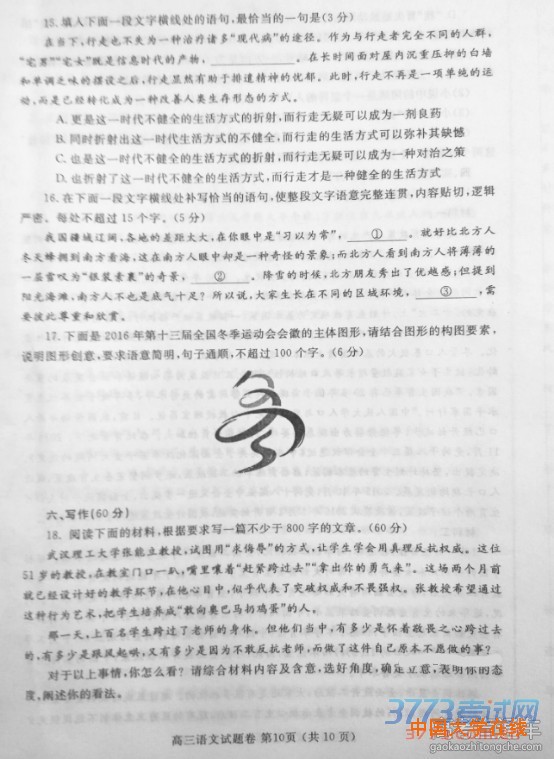 15. 填入下面一段文字横线处的语句,最恰当的一句是(3 分)
在当下,行走也不失为一种治疗诸多“现代病”的途径。作为与行走者完全不同的人群,
“宅男”“宅女”既是信息时代的产物,____________。在长时间面对屋内沉重压抑的白墙
和单调乏味的摆设之后,行走显然有助于排遣精神的忧郁。此时,行走不再是一项单纯的运
动,而是已经转化成为一种改善人类生存形态的方式。
A. 更是这一时代不健全的生活方式的折射,而行走无疑可以成为一剂良药
B. 同时折射出这一时代生活方式的不健全,而行走的生活方式可以弥补其缺憾
C. 也是这一时代不健全的生活方式的折射,而行走无疑可以成为一种对治之策
D. 也折射了这一时代不健全的生活方式,而行走才是一种健全的生活方式
16. 在下面一段文字横线处补写恰当的语句,使整段文字语意完整连贯,内容贴切,逻辑
严密。每处不超过 15 个字。(5 分)
我国疆域辽阔,各地的差距太大,在你眼中是“习以为常”,____①____。就好比北方人
冬天蜂拥到南方看海,这在南方人眼中却是一种奇怪的景象;而北方人看到南方人将薄薄的
一层雪叹为“银装素裹”的奇景,____②____。降雪的时候,北方朋友秀出了优越感;但提到
阳光海滩,南方人不也是底气十足?所以说,大家生长在不同的区域环境,____③____,需
要彼此尊重和欣赏。
17. 下面是 2016 年第十三届全国冬季运动会会徽的主体图形,请结合图形的构图要素,
说明图形创意,要求语意简明,句子通顺,不超过 100 个字。(6 分)
六、写作(60 分)
18. 阅读下面的材料,根据要求写一篇不少于 800 字的文章。(60 分)
武汉理工大学张能立教授,试图用“求侮辱”的方式,让学生学会用真理反抗权威。这位
51 岁的教授,在教室门口一趴,嘴里嚷着“赶紧跨过去”“拿出你的勇气来”。这场两个月前
就已经设计好的教学环节,在他心目中,似乎代表了突破权威和不畏强权。张教授希望通过
这种行为艺术,把学生培养成“敢向奥巴马扔鸡蛋”的人。
那一天,上百名学生跨过了老师的身体。但他们当中,有多少是怀着敬畏之心跨过去
的,有多少是跟风起哄,又有多少是因为不敢反抗老师,而做了这件自己原本不愿做的事?
对于以上事情,你怎么看?请综合材料内容及含意,选好角度,确定立意,表明你的态
度,阐述你的看法。
高三语文试题卷 第10页(共 10 页)
3773考试网
中国大学在线
gaokaozhi.tongche.com